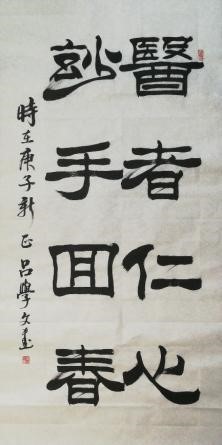 醫者仁心
玅手回春
時在庚子新正吕學文書